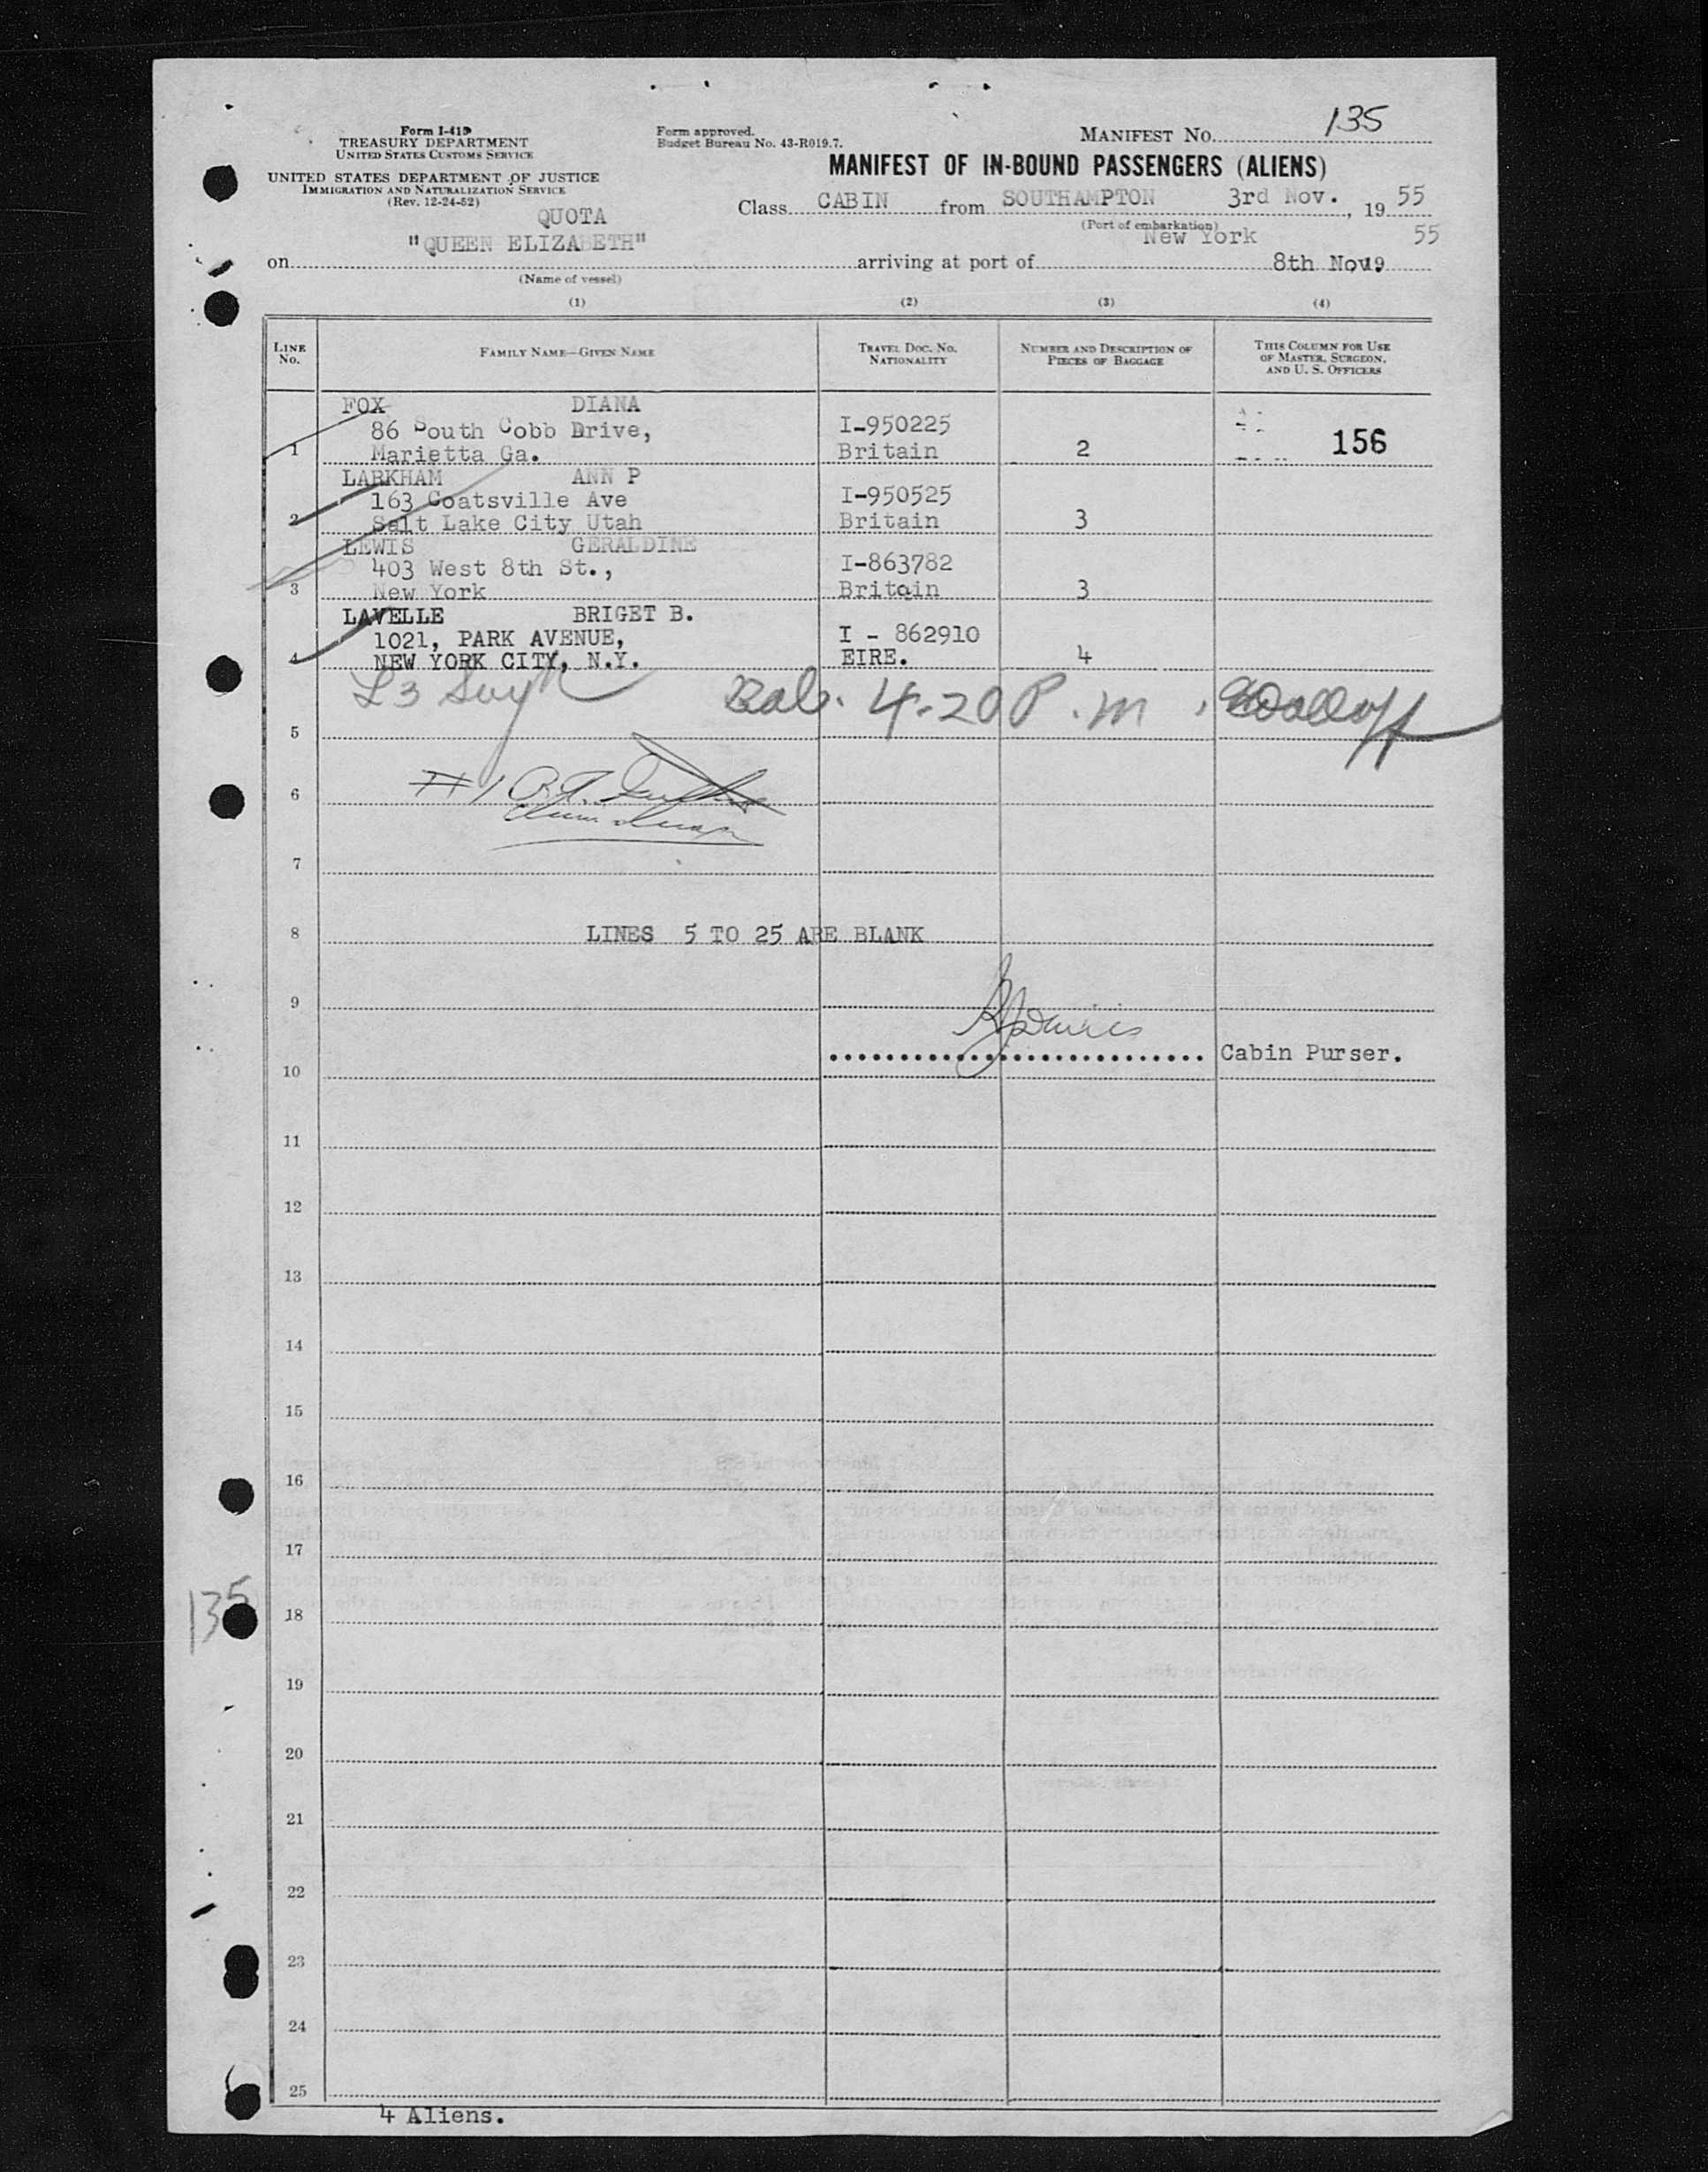 Form I-415
TREASURY DEPARTMENT
UNITED STATES CUSTOMS SERVICE
UNITED STATES DEPARTMENT OF JUSTICE
IMMIGRATION AND NATURALIZATION SERVICE
(Rev. 12-24-52)
Form approved.
Budget Bureau No. 43-R019.7.
MANIFEST NO. 135
MANIFEST OF IN-BOUND PASSENGERS (ALIENS)
QUOTA
Class CABIN from SOUTHAMPTON 3rd Nov. , 19 55
(Port of embarkation)
on "QUEEN ELIZABETH" arriving at port of New York 8th Nov 19 55
(Name of vessel)
(1) (2) (3) (4)
LINE NO. FAMILY NAME—GIVEN NAME TRAVEL DOC. NO. NATIONALITY NUMBER AND DESCRIPTION OF PIECES OF BAGGAGE THIS COLUMN FOR USE OF MASTER, SURGEON, AND U. S. OFFICERS
FOX DIANA
86 South Cobb Drive, I-950225
1 Marietta Ga. Britain 2 156
LARKHAM ANN P
163 Coatsville Ave I-950525
2 Salt Lake City Utah Britain 3
LEWIS GERALDINE
403 West 8th St., I-863782
3 New York Britain 3
LAVELLE BRIGET B.
1021, PARK AVENUE, I - 862910
4 NEW YORK CITY, N.Y. EIRE. 4
L3 4-20 P.m.
5
#1
6
7
8 LINES 5 TO 25 ARE BLANK
9
Cabin Purser.
10
11
12
13
14
15
16
17
135
18
19
20
21
22
23
24
25
4 Aliens.